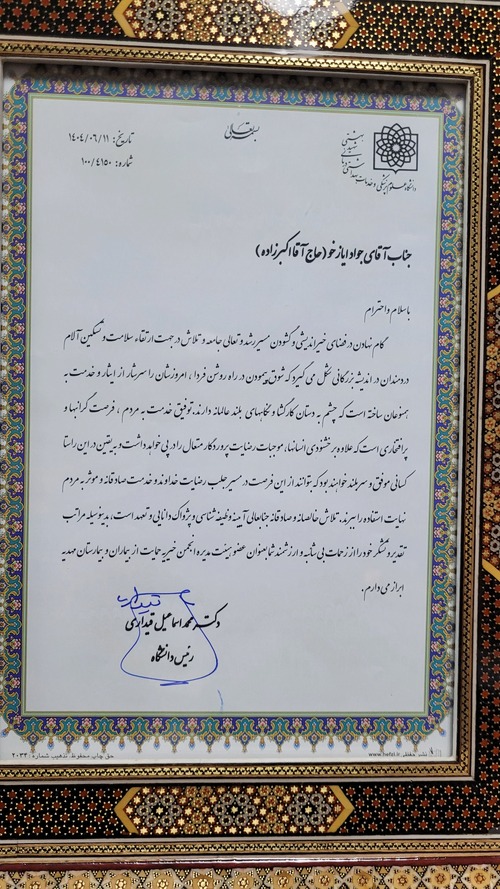 بسمه تعالی
تاریخ: ۱۴۰۴/۰۶/۱۱
شماره: ۱۰۰/۴۱۵۰
دانشگاه علوم پزشکی و خدمات بهداشتی درمانی شهید بهشتی
جناب آقای جواد ایازخو (حاج آقا اکبرزاده)
باسلام و احترام
گام نهادن در فضای خیراندیشی و گشودن مسیر رشد و تعالی جامعه و تلاش در جهت ارتقاء سلامت و تسکین آلام
دردمندان در اندیشه بزرگانی شکل می گیرد که شوق پیمودن در راه روشن فردا، امروزشان را سرشار از ایثار و خدمت به
همنوعان ساخته است که چشم به دستان کارگشا و نگاههای بلند عالمانه دارند. توفیق خدمت به مردم، فرصت گرانبها و
پرافتخاری است که علاوه بر خشنودی انسانها، موجبات رضایت پروردگار متعال را در پی خواهد داشت و به یقین در این راستا
کسانی موفق و سربلند خواهند بود که بتوانند از این فرصت در مسیر جلب رضایت خداوند و خدمت صادقانه و موثر به مردم
نهایت استفاده را ببرند. تلاش خالصانه و صادقانه جنابعالی آیینه وظیفه شناسی و پژواک دانایی و تعهد است، بدینوسیله مراتب
تقدیر و تشکر خود را از زحمات بی شائبه و ارزشمند شما بعنوان عضو هیئت مدیره انجمن خیریه حمایت از بیماران و بیمارستان مهدیه
ابراز می دارم.
دکتر محمد اسماعیل قیداری
رئیس دانشگاه
حق چاپ محفوظ. تذهیب شماره: ۲۰۳۳
www.hefzi.ir نشر حفظی